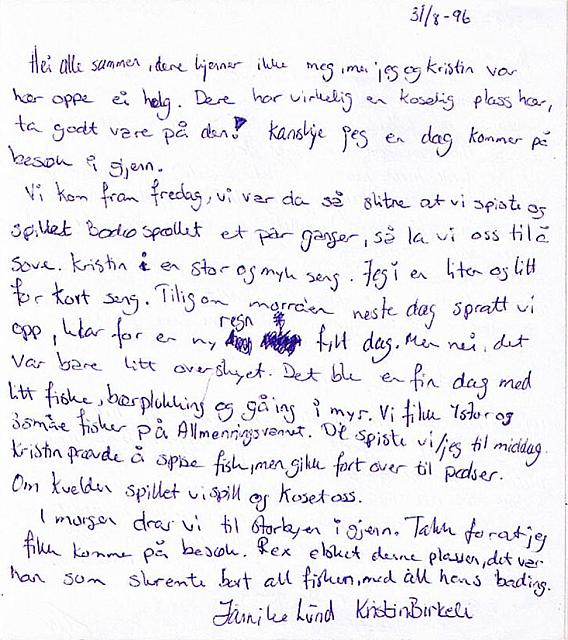 31/8-96
Hei alle sammen, dere kjenner ikke meg, men jeg og Kristin var
her oppe ei helg. Dere har virkelig en koselig plass her,
ta godt vare på den! Kanskje jeg en dag kommer på
besøk i gjenn.
Vi kom fram fredag, vi var da så slitne at vi spiste og
spillet Bodøspellet et par ganger, så la vi oss til å
sove. Kristin i en stor og myk seng. Jeg i en liten og litt
for kort seng. Tilig om morraen neste dag spratt vi
opp, klar for en ny regn fylt dag. Men nei, det
var bare litt overskyet. Det ble en fin dag med
litt fiske, bærplukking og gåing i myr. Vi fikk 1 stor og
3 småe fisker på Allmenningsvannet. De spiste vi/jeg til middag.
Kristin prøvde å spise fisk, men gikk fort over til pølser.
Om kvelden spillet vi spill og koset oss.
I morgen drar vi til storbyen i gjenn. Takk for at jeg
fikk komme på besøk. Rex elsket denne plassen, det var
han som skremte bort all fisken, med all hens bading.
Jannike Lund Kristin Birkeli